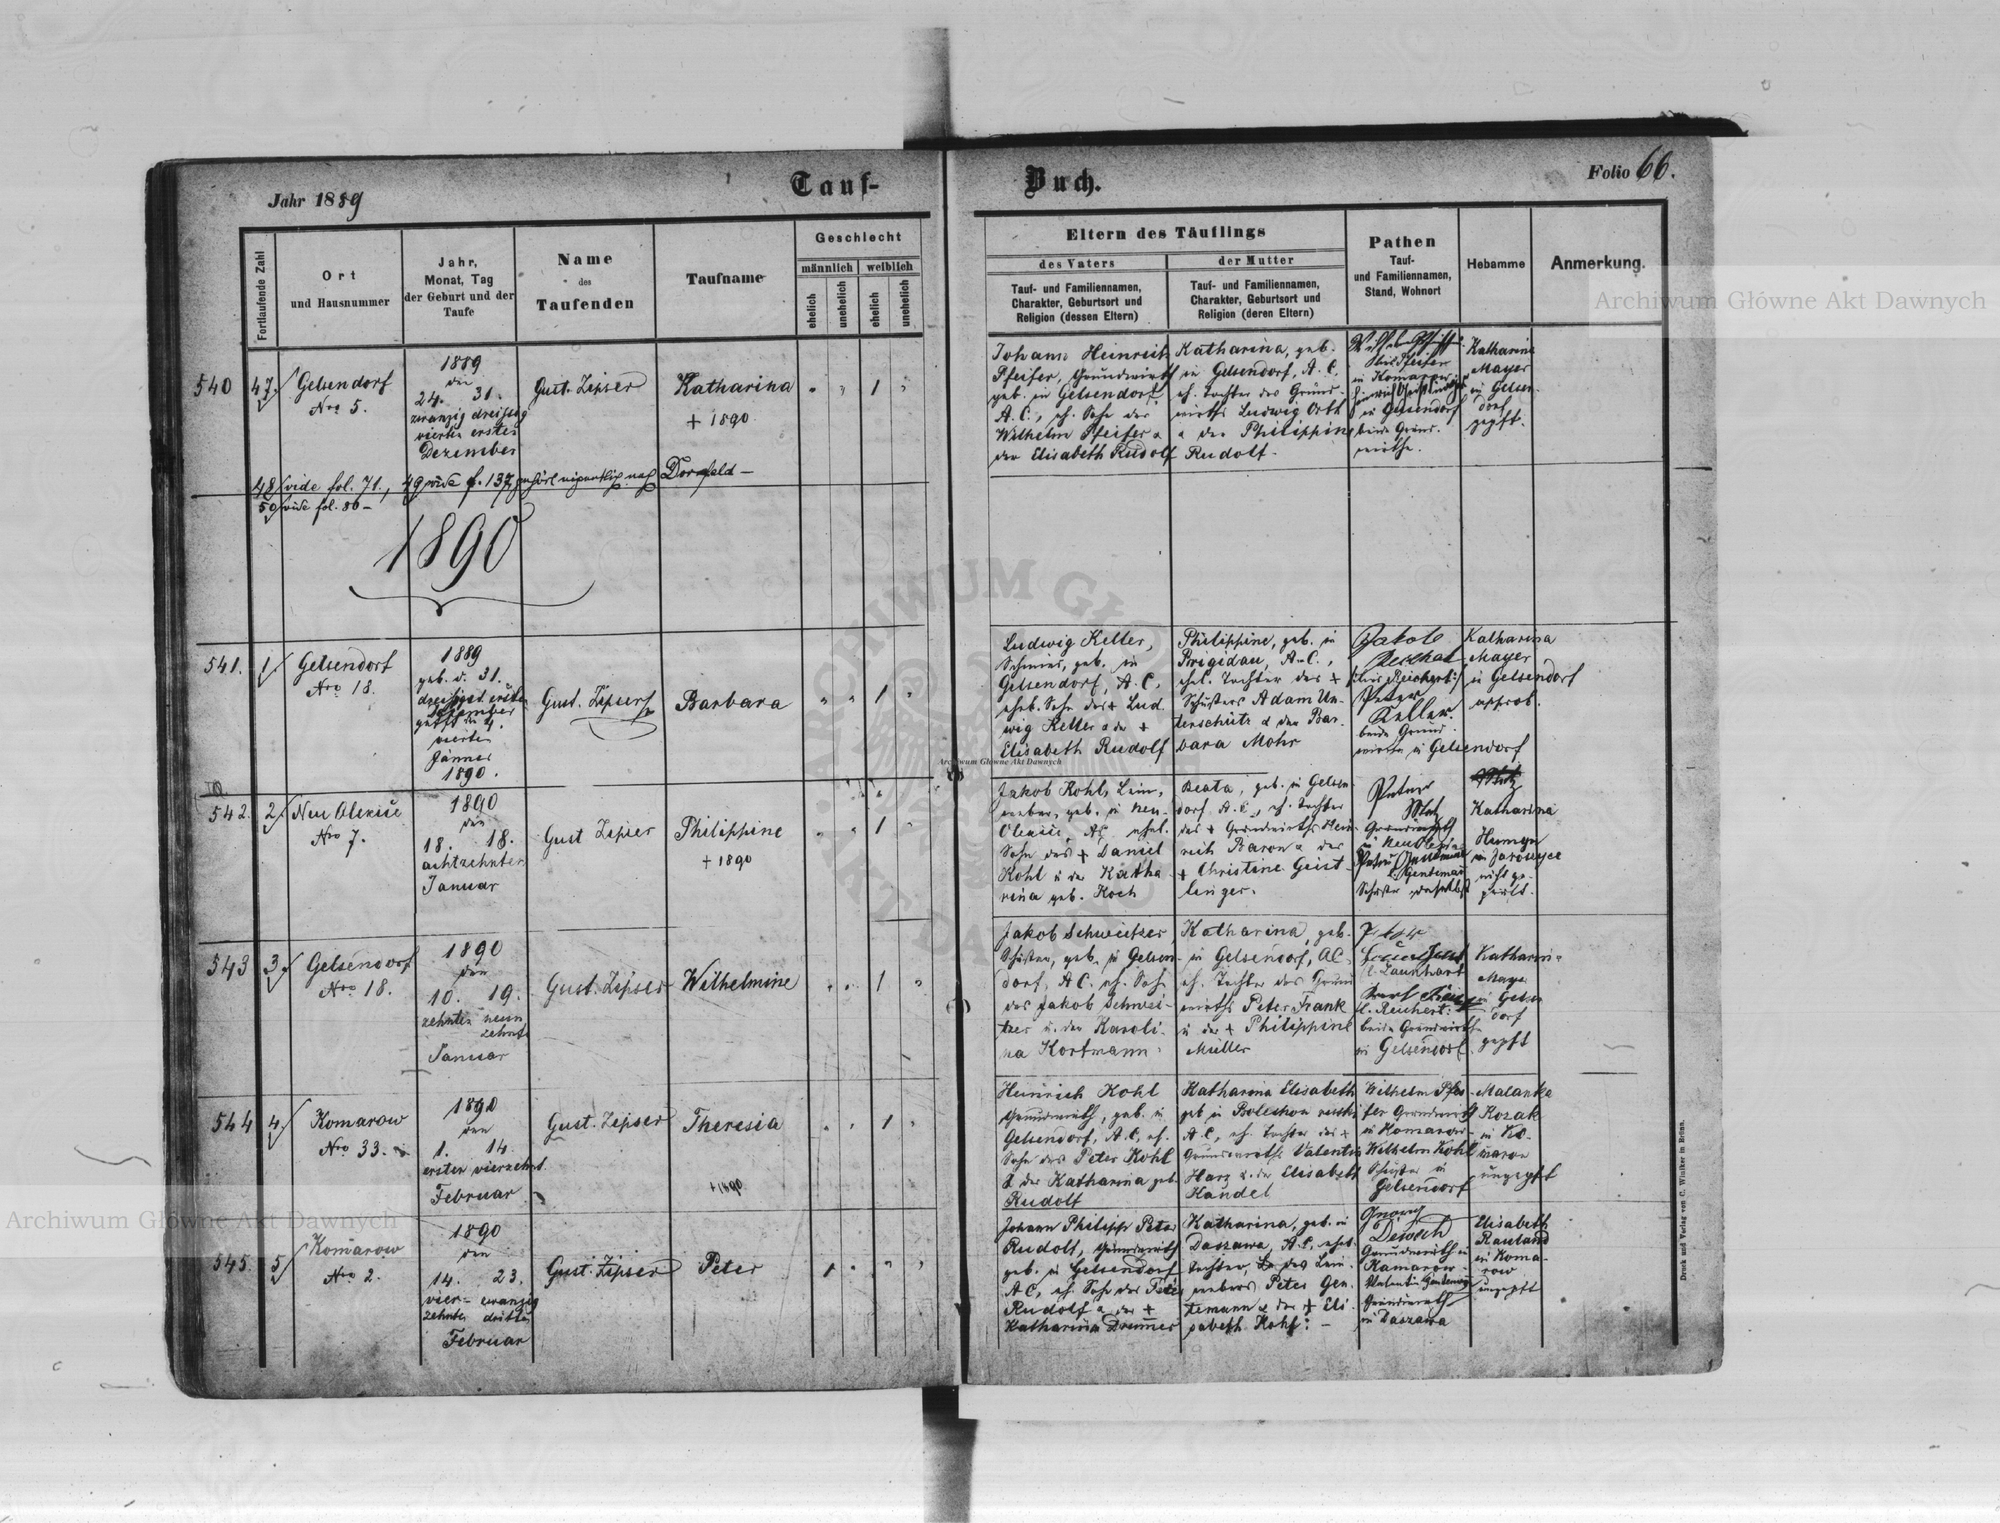 Jahr 1889
Tauf-
Buch.
Folio 66.
Fortlaufende Zahl
Ort
und Hausnummer
Jahr,
Monat, Tag
der Geburt und der
Taufe
Name
des
Taufenden
Taufname
Geschlecht
männlich weiblich
ehelich
unehelich
ehelich
unehelich
Eltern des Täuflings
des Vaters
Tauf- und Familiennamen,
Charakter, Geburtsort und
Religion (dessen Eltern)
der Mutter
Tauf- und Familiennamen,
Charakter, Geburtsort und
Religion (deren Eltern)
Pathen
Tauf-
und Familiennamen,
Stand, Wohnort
Hebamme
Anmerkung.
540
47.
Gelsendorf
Nro 5.
1889
den
24. 31.
zwanzig dreissig
vierten ersten
Dezember
Gust. Zipser
Katharina
+ 1890
1
Johann Heinrich
Pfeifer, Grundwirth
geb. in Gelsendorf
A.C., eh. Sohn des
Wilhelm Pfeifer u
der Elisabeth Rudolf
Katharina, geb.
in Gelsendorf, A.C.
eh. Tochter des Grund-
wirths Ludwig Orth
u der Philippine
Rudolf.
in Komarow
in Gelsendorf
beide Grund-
wirthe.
Katharina
Mayer
in Gelsen-
dorf
gepft.
48 vide fol. 71, 49 vide f. 137 gehört eigentlich nach Dornfeld —
50 vide fol. 86 —
1890
541.
1
Gelsendorf
Nro 18.
1889
geb. d. 31.
dreissigst ersten
Dezember
getft den 4.
vierten
Jänner
1890.
Gust. Zipser
Barbara
1
Ludwig Keller,
Schmied, geb. in
Gelsendorf, A.C.
eheb. Sohn des + Lud-
wig Keller u der +
Elisabeth Rudolf
Philippine, geb. in
Brigidau, A.C.,
ehel. Tochter des +
Schusters Adam Un-
terschütz u der Bar-
bara Mohr
Jakob
Reichert
Peter
Keller.
beide Grund-
wirthe in Gelsendorf
Katharina
Mayer
in Gelsendorf
approb.
542.
2
Neu Olexice
Nro 7.
1890
den
18. 18.
achtzehnten
Januar
Gust Zipser
Philippine
+ 1890
1
Jakob Kohl, Lein-
weber, geb. in Neu-
Olexice, AC, ehel.
Sohn des + Daniel
Kohl u der Katha-
rina geb. Koch
Beata, geb. in Gelsen-
dorf A.C., eh. Tochter
des + Grundwirths Hein-
reich Baron u der
+ Christine Geist-
linger.
Peter
Grundwirth
Schuster daselbst
Katharina
Humeyn
in Jaroszyce
nicht ge-
prüft.
543
3
Gelsendorf
Nro 18.
1890
den
10. 19.
zehnten neun
zehnt
Januar
Gust. Zipser
Wilhelmine
1
Jakob Schweitzer
Schuster, geb. in Gelsen-
dorf, A.C. eh. Sohn
des Jakob Schwei-
tzer u. der Karoli-
na Kortmann.
Katharina, geb.
in Gelsendorf, AC
eh. Tochter des Grund
wirths Peter Frank
u der + Philippine
Müller
Peter
beide Grundwirthe
in Gelsendorf
Katharina
Mayer
in Gelsen
dorf
gepft
544
4
Komarow
Nro 33.
1890
den
1. 14.
ersten vierzehnt.
Februar
Gust. Zipser
Theresia
+ 1890
1
Heinrich Kohl
Grundwirth, geb. in
Gelsendorf, A.C, eh.
Sohn des Peter Kohl
u der Katharina geb
Rudolf
Katharina Elisabeth
geb in Bolechow
A.C, eh. Tochter des +
Grundwirths Valentin
Harz u. der Elisabeth
Handel
Wilhelm Pfei-
fer Grundwirth
in Komarow
Wilhelm Kohl
Schuster in
Gelsendorf
Malanka
Kozak
in Ko-
marow
ungepft
545.
5
Komarow
Nro 2.
1890
den
14. 23.
vier- zwanzig
zehnten dritten
Februar
Gust. Zipser
Peter
1
Johann Philipp Peter
Rudolf, Grundwirth
geb. in Gelsendorf
AC, eh. Sohn des Peter
Rudolf u der +
Katharina Dremmer
Katharina, geb. in
Daszawa, A.C, ehel.
Tochter, des Lein-
webers Peter Gen-
temann u der + Eli-
sabeth Kohl: —
Georg
Grundwirth in
Komarow
Valentin
Grundwirth
in Daszawa
Elisabeth
Rauland
in Koma-
row
ungepft
Druck und Verlag von C. Winiker in Brünn.
Archiwum Główne Akt Dawnych
Archiwum Główne Akt Dawnych
Archiwum Główne Akt Dawnych